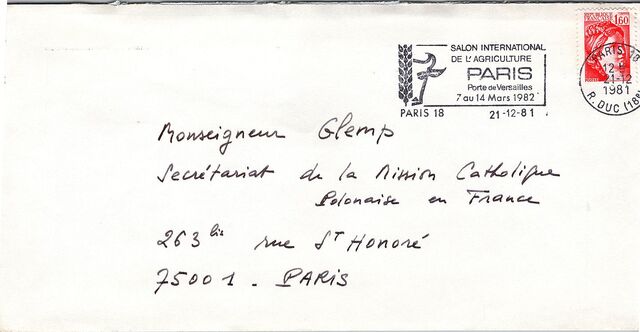 SALON INTERNATIONAL
DE L'AGRICULTURE
PARIS
Porte de Versailles
7 au 14 Mars 1982
PARIS 18 21-12-81
1,60
PARIS 18
12 H
21-12
1981
R. DUC (18e)
Monseigneur Glemp
Secrétariat de la Mission Catholique
Polonaise en France
263 bis rue St Honoré
75001. PARIS